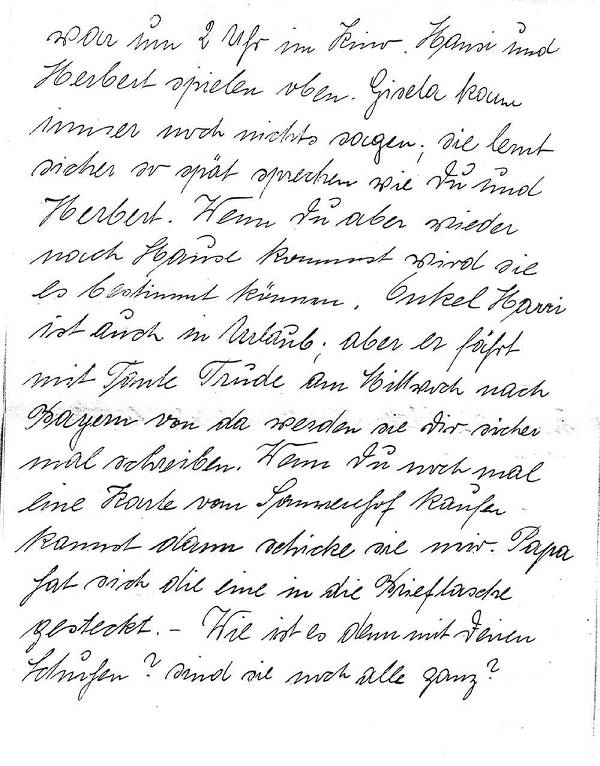 war um 2 Uhr im Kino. Hansi und
Herbert spielen oben. Gisela kann
immer noch nichts sagen; sie lernt
sicher so spät sprechen wie Du und
Herbert. Wenn Du aber wieder
nach Hause kommst wird sie
es bestimmt können. Onkel Harri
ist auch in Urlaub; aber er fährt
mit Tante Trude am Mittwoch nach
Bayern von da werden sie Dir sicher
mal schreiben. Wenn Du noch mal
eine Karte vom Sonnenhof kaufen
kannst dann schicke sie mir. Papa
hat sich die eine in die Brieftasche
gesteckt. – Wie ist es denn mit Deinen
Schuhen? sind sie noch alle ganz?